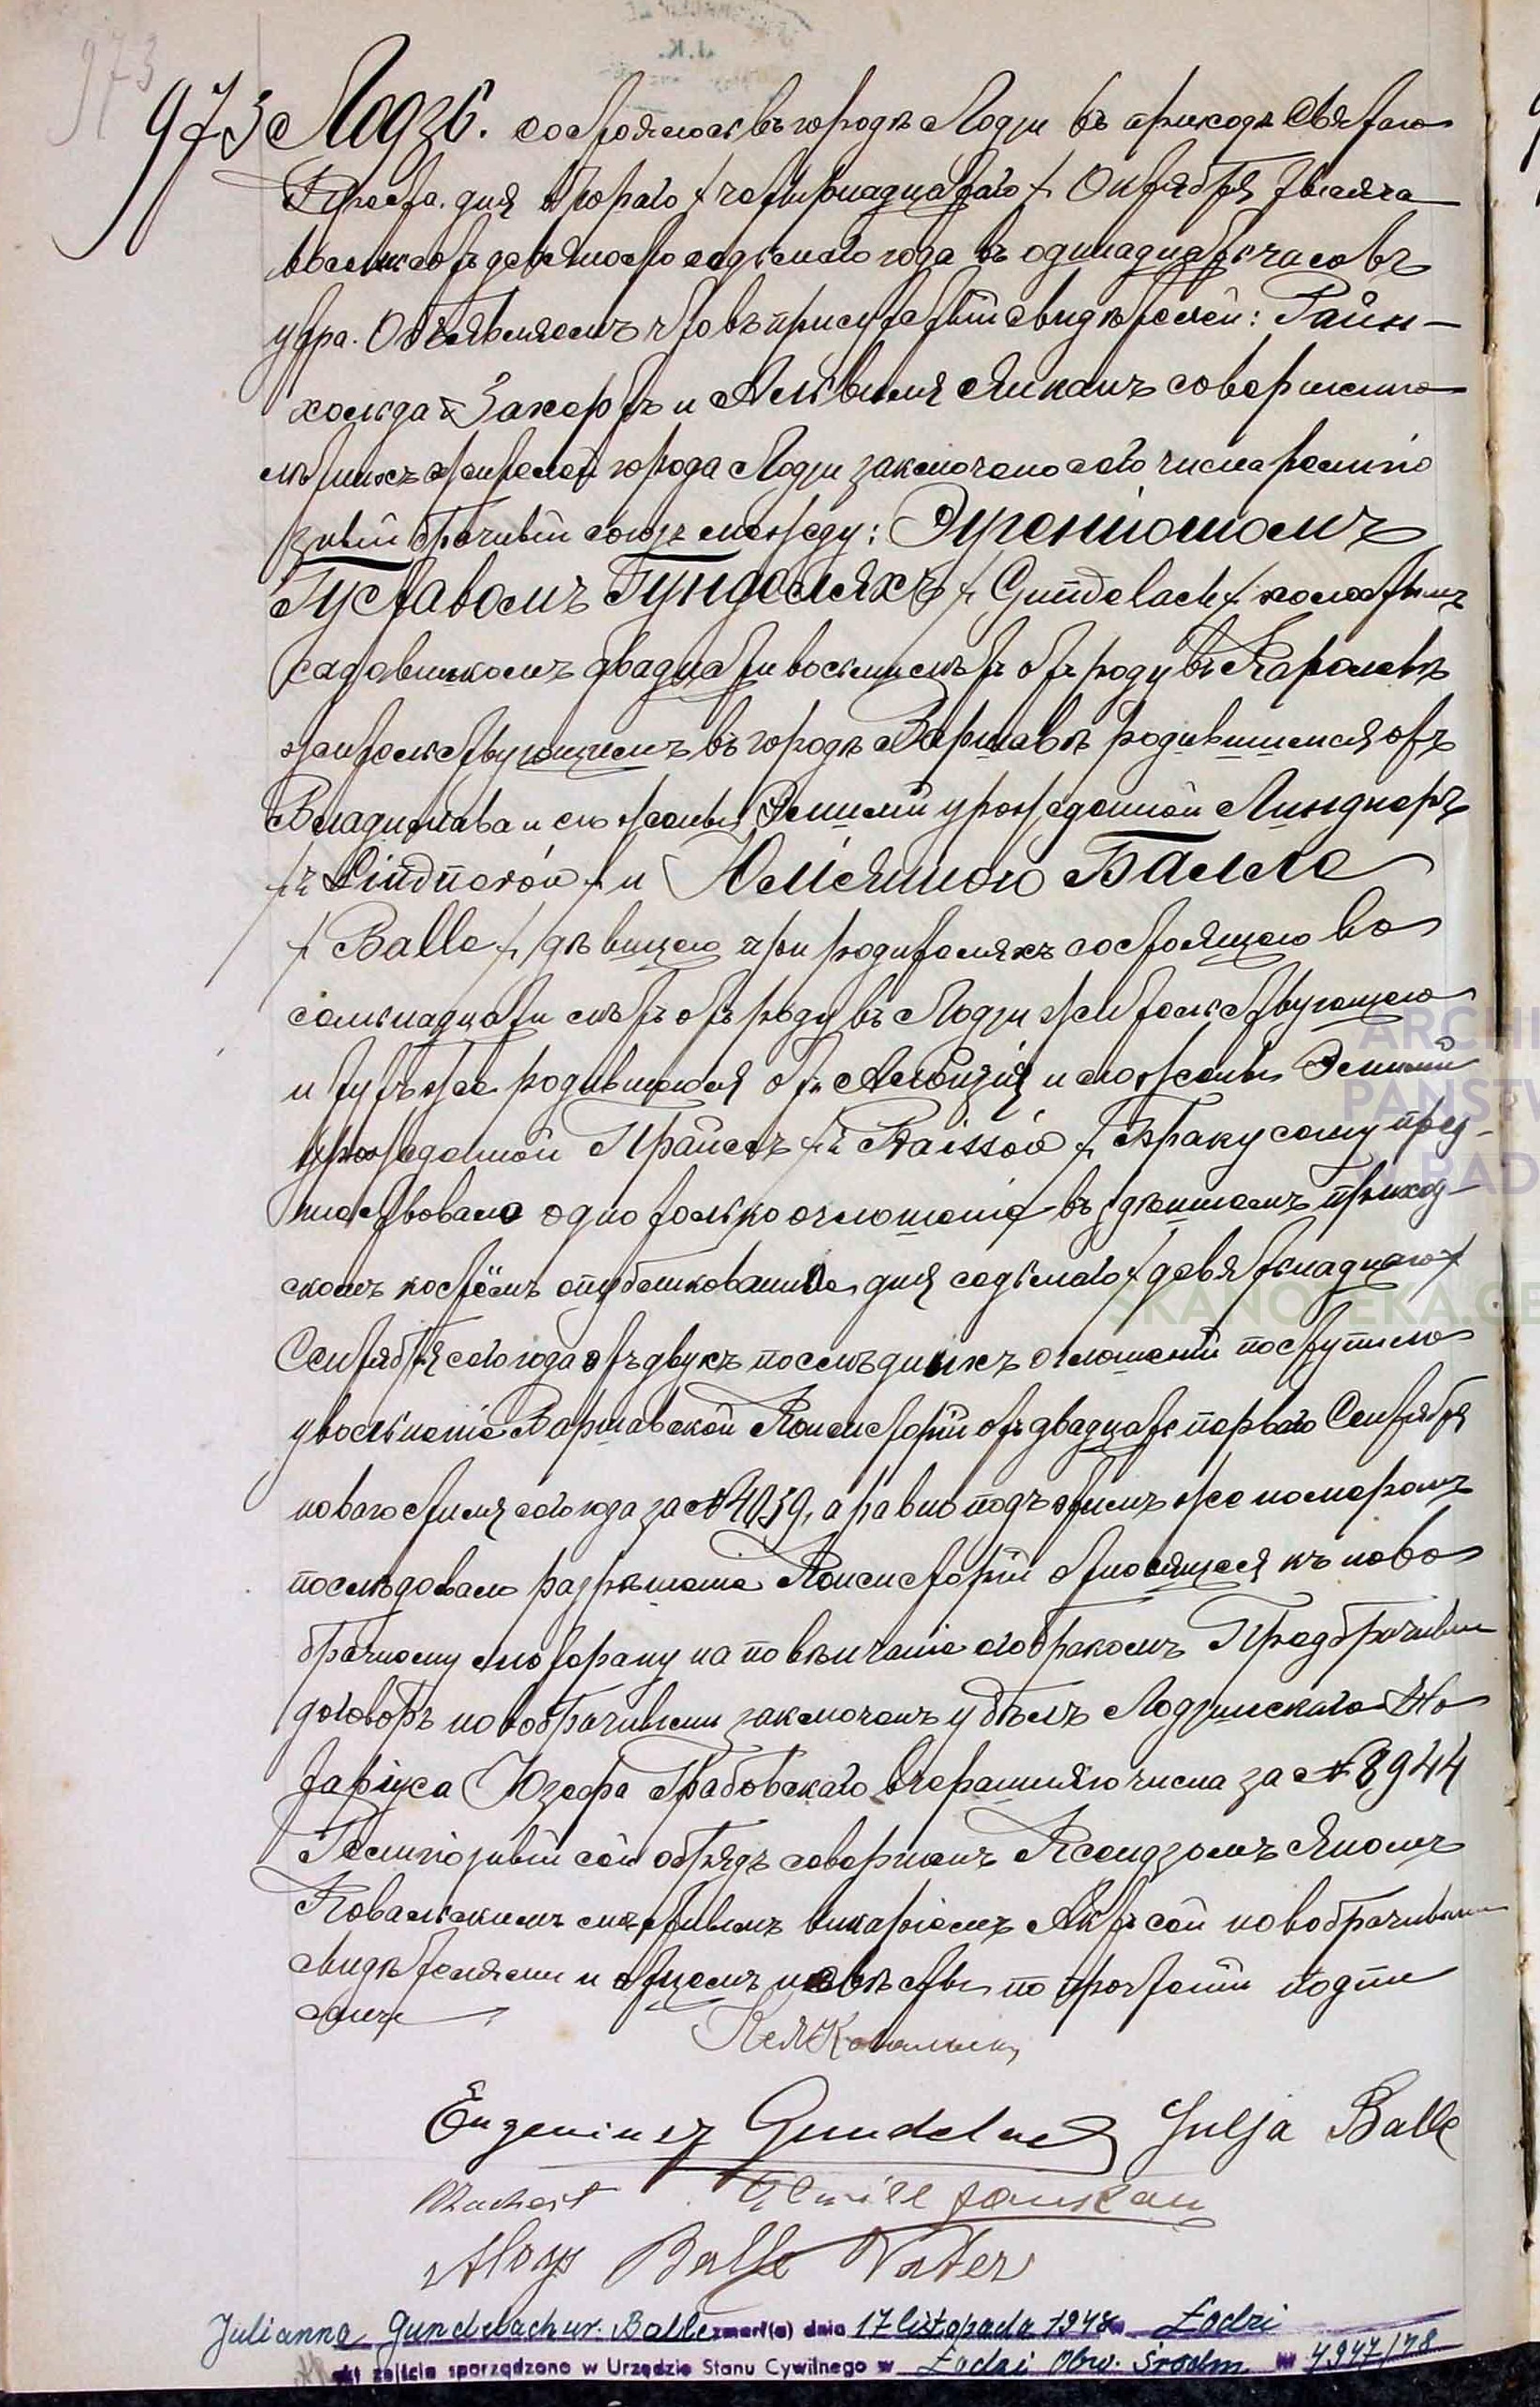 973
973 Лодзь. состоялось въ городѣ Лодзи въ приходѣ Святаго
Креста. дня втораго / четырнадцатаго / Октября тысяча
восемьсотъ девяносто седьмаго года въ одинадцать часовъ
утра. Объявляемъ что въ присутствіи свидѣтелей: Райн-
хольда Захертъ и Альвиля Яиканъ совершенно
лѣтнихъ жителей города Лодзи заключено сего числа религіо
зный брачный союзъ между: Эугеніюшомъ
Густавомъ Гунделяхъ / Gundelach / холостымъ
садовникомъ двадцати восьми лѣтъ отъ роду въ Каролевѣ
жительствующимъ въ городѣ Варшавѣ родившимся отъ
Владислава и его жены Эмиліи урожденной Линднеръ
/ z Lindnerów / и Юліянною Балле
/ Balle / дѣвицею при родителяхъ состоящею во
семьнадцати лѣтъ отъ роду въ Лодзи жительствующею
и тутъ же родившеюся отъ Алоизія и его жены Эмиліи
урожденной Прайсъ / z Praissów / Браку сему пред-
шествовало одно только оглашеніе въ здѣшнемъ приход
скомъ костёлѣ опубликованное дня седьмаго / девятьнадцатаго /
Сентября сего года отъ двухъ послѣднихъ оглашеній поступило
увольненіе Варшавской Консисторіи отъ двадцать перваго Сентября
новаго стиля сего года за № 4059, а равно подъ этимъ же номеромъ
послѣдовало разрѣшеніе Консисторіи относящееся къ ново
брачному лютерану на повѣнчаніе его бракомъ Предбрачный
договоръ новобрачными заключенъ у былъ Лодзинскаго Но
таріуса Юзефа Грабовскаго вчерашняго числа за № 8944
Религіозный сей обрядъ совершенъ Ксендзомъ Яномъ
Ковальскимъ мѣстнымъ викаріемъ Актъ сей новобрачными
свидѣтелями и отцемъ невѣсты по прочтеніи подпи
санъ
Кс Я Ковальскій
Eugeniusz Gundelach Julja Balle
RZachert Alwill
Aloys Balle Vater
Julianna Gundelach ur. Balle zmarł(a) dnia 17 listopada 1948 w Łodzi
akt zejścia sporządzono w Urzędzie Stanu Cywilnego w Łodzi Obw. Śródm. nr 4947/48
ARCHI
PAŃSTW
W RAD
SKANOTEKA.GE